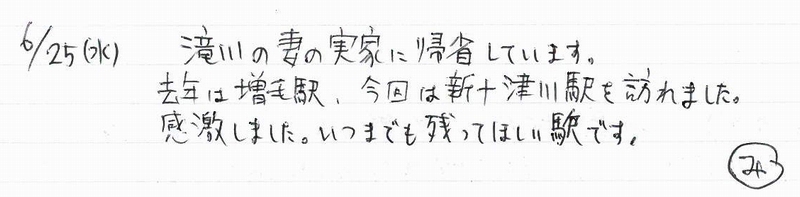 6/25(水) 滝川の妻の実家に帰省しています。
去年は増毛駅、今回は新十津川駅を訪れました。
感激しました。いつまでも残ってほしい駅です。